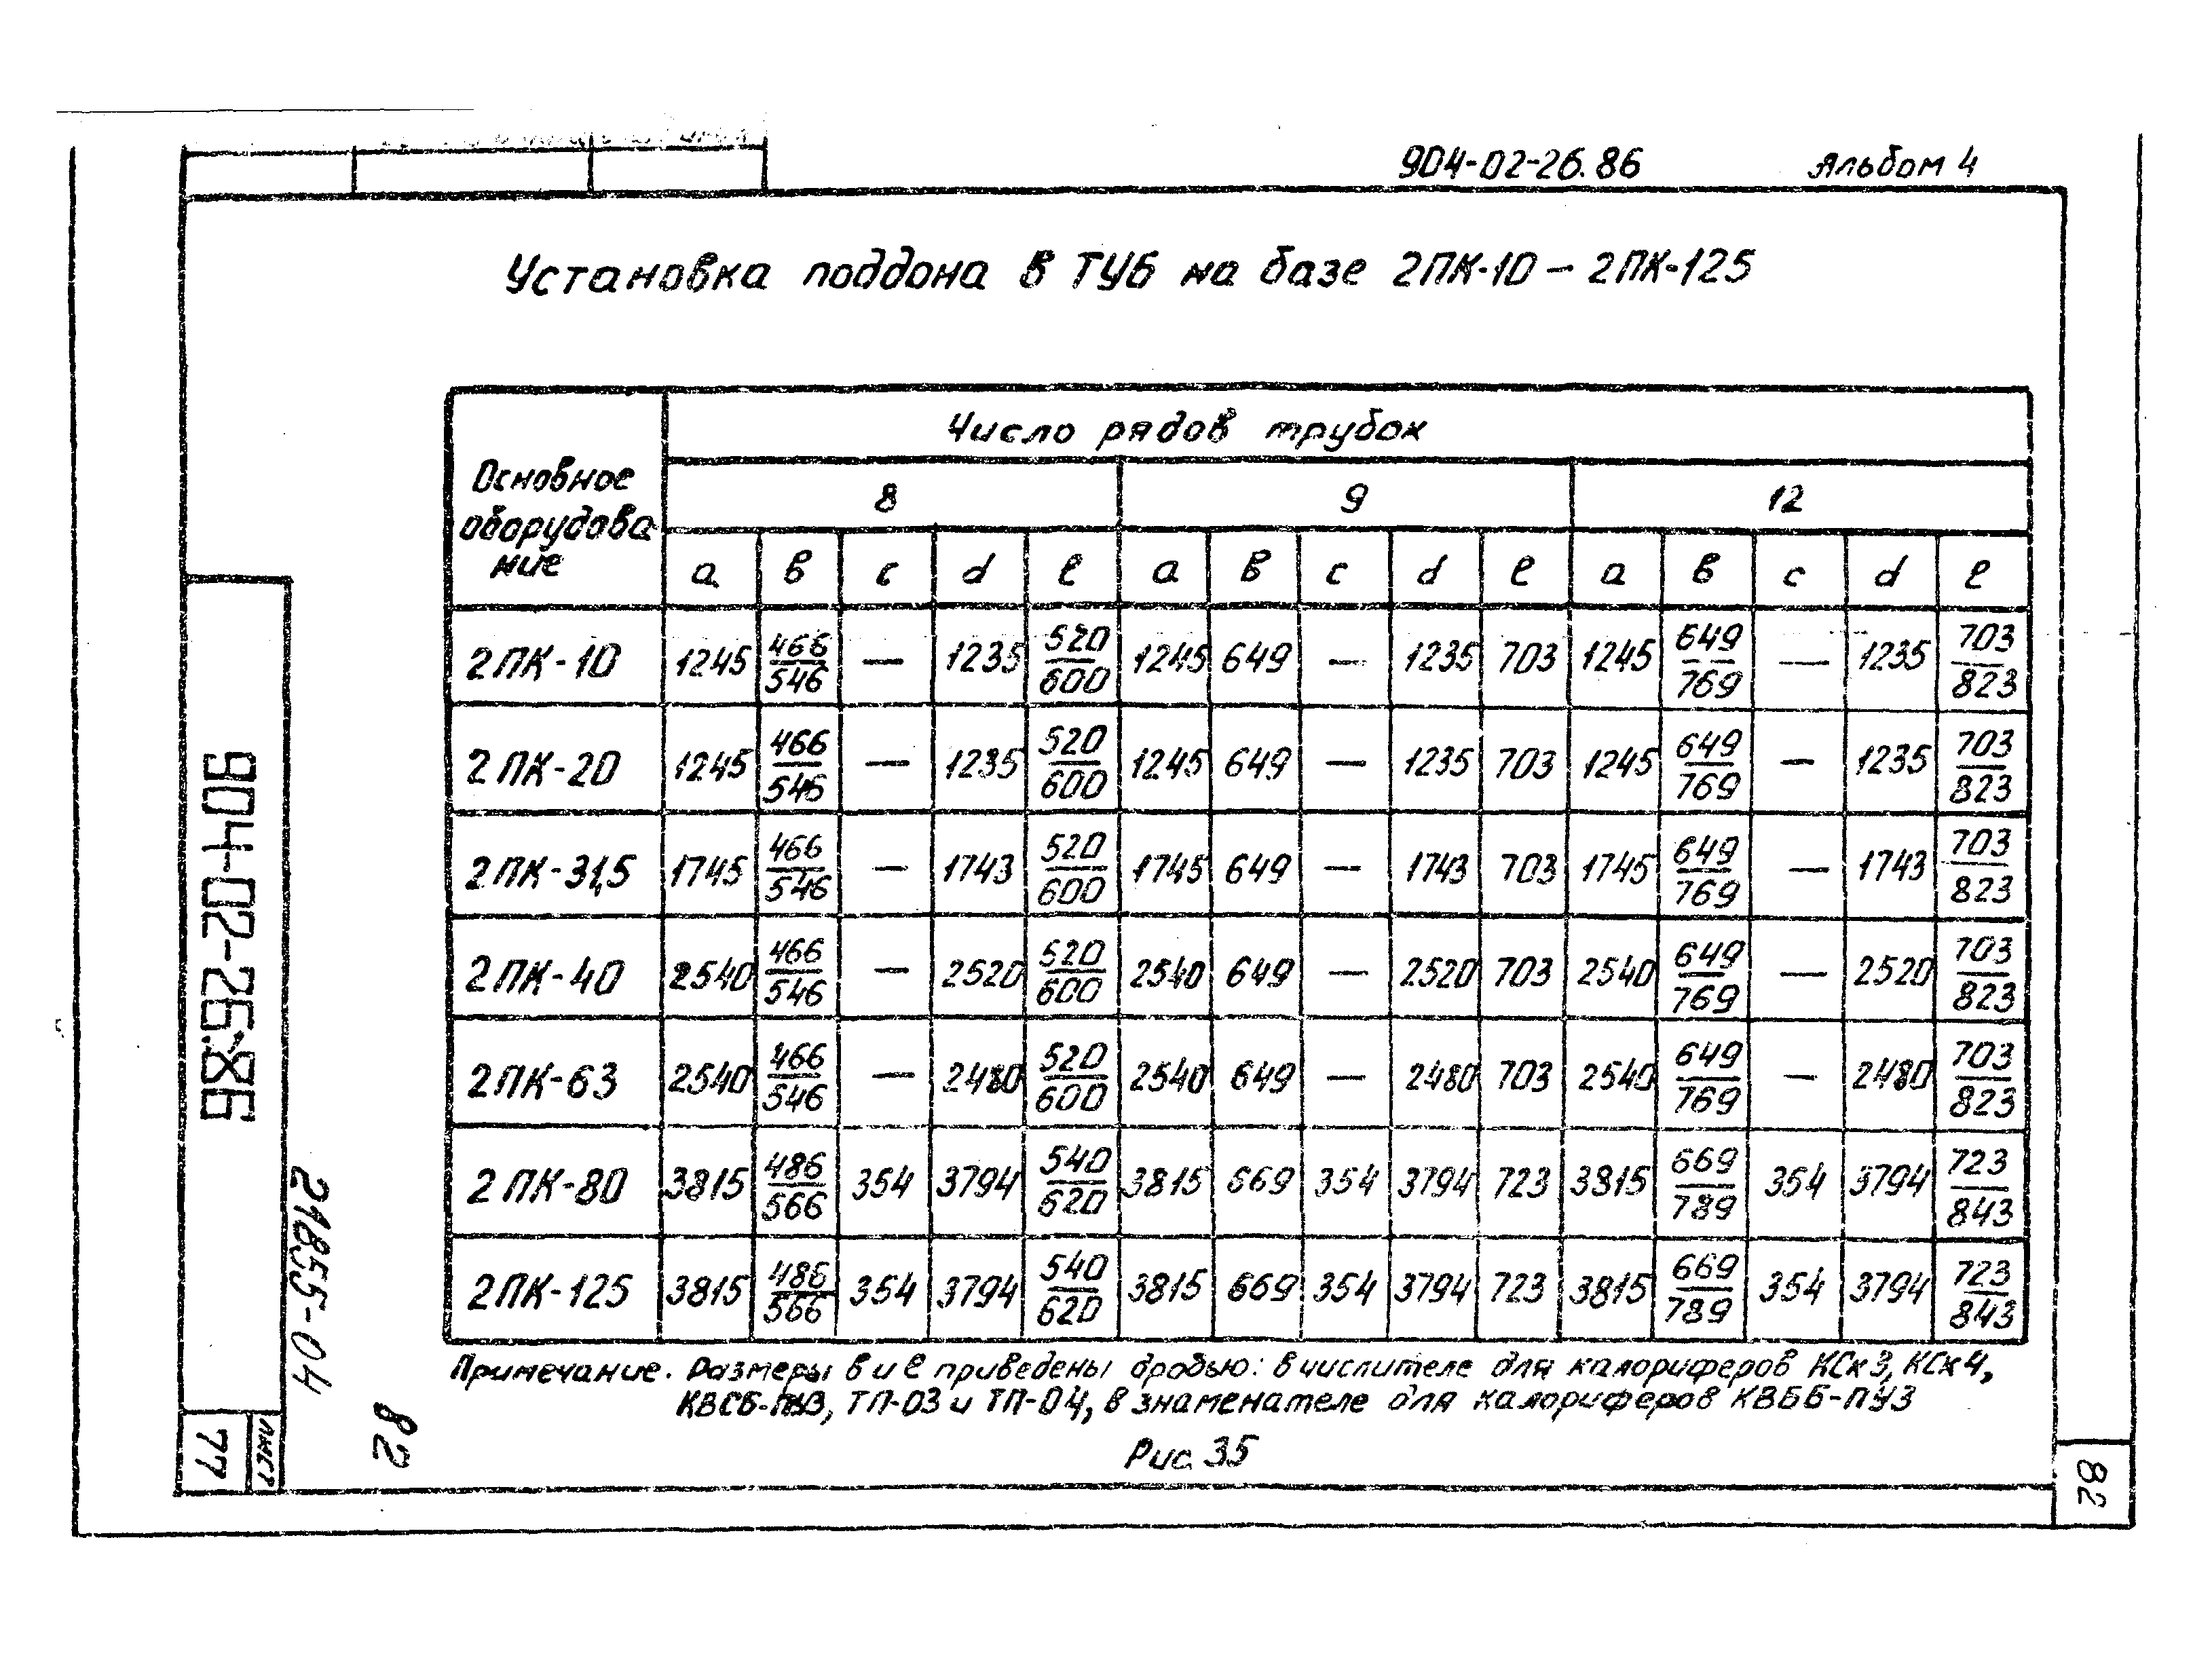 904-02-26.86 Альбом 4
Установка поддона в ТУБ на базе 2ПК-10 – 2ПК-125
Основное оборудова-ние
Число рядов трубок
8 9 12
а в с d е а в с d е а в с d е
2ПК-10 1245 466/546 — 1235 520/600 1245 649 — 1235 703 1245 649/769 — 1235 703/823
2ПК-20 1245 466/546 — 1235 520/600 1245 649 — 1235 703 1245 649/769 — 1235 703/823
2ПК-31,5 1745 466/546 — 1743 520/600 1745 649 — 1743 703 1745 649/769 — 1743 703/823
2ПК-40 2540 466/546 — 2520 520/600 2540 649 — 2520 703 2540 649/769 — 2520 703/823
2ПК-63 2540 466/546 — 2480 520/600 2540 649 — 2480 703 2540 649/769 — 2480 703/823
2ПК-80 3815 486/566 354 3794 540/620 3815 669 354 3794 723 3815 669/789 354 3794 723/843
2ПК-125 3815 486/566 354 3794 540/620 3815 669 354 3794 723 3815 669/789 354 3794 723/843
Примечание. Размеры в и е приведены дробью: в числителе для калориферов КСк3, КСк4,
КВСБ-ПУ3, ТП-03 и ТП-04, в знаменателе для калориферов КВББ-ПУ3
Рис. 35
904-02-26.86
21855-04
82
Лист
77
82